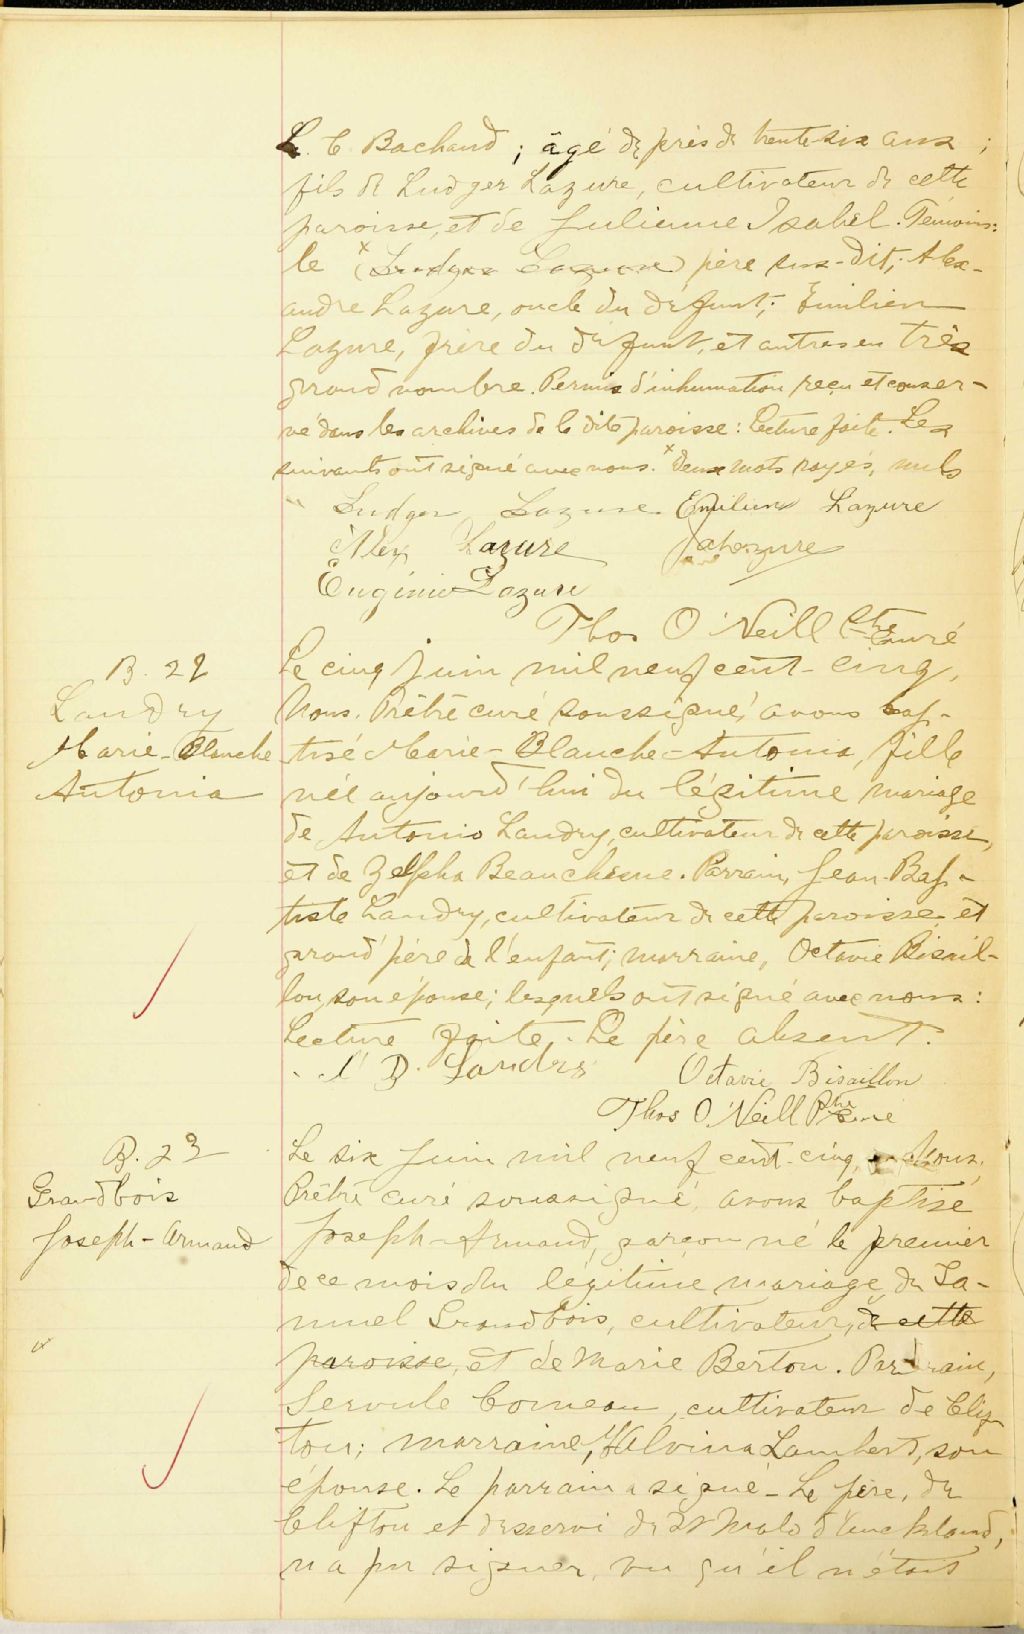 L. C. Bachand ; âgé de près de trente-six ans ;
fils de Ludger Lazure, cultivateur de cette
paroisse, et de Julienne Isabel. Témoins:
le x (Ludger Lazure) père sus-dit; Alex-
andre Lazure, oncle du défunt; Emilien
Lazure, frère du défunt, et autres en très
grand nombre. Permis d'inhumation reçu et conser-
vé dans les archives de la dite paroisse: Lecture faite. Les
suivants ont signé avec nous. x Deux mots rayés, nuls
Ludger Lazure Emilien Lazure
Alex Lazure
Eugénie Lazure
Thos O'Neill Ptre Curé
B. 22
Landry
Marie-Blanche
Antonia
Le cinq juin mil neuf cent-cinq,
Nous, Prêtre curé soussigné, avons bap-
tisé Marie-Blanche-Antonia, fille
née aujourd'hui du légitime mariage
de Antonio Landry, cultivateur de cette paroisse,
et de Zelpha Beauchesne. Parrain, Jean-Bap-
tiste Landry, cultivateur de cette paroisse et
grand'père de l'enfant; marraine, Octavie Bisail-
lon, son épouse; lesquels ont signé avec nous:
Lecture faite. Le père absent.
J B. Landry Octavie Bisaillon
Thos O'Neill Ptre Curé
B. 23
Grandbois
Joseph-Armand
Le six Juin mil neuf cent-cinq, Nous,
Prêtre curé soussigné, avons baptisé
Joseph-Armand, garçon né le premier
de ce mois du légitime mariage de Sa-
muel Grandbois, cultivateur, de cette
paroisse, et de Marie Berton. Parrain,
Servule Comeau, cultivateur de Clif-
ton; marraine, Malvina Lambert, son
épouse. Le parrain a signé - Le père, de
Clifton et desservi de St Malo d'Auckland,
n'a pu signer, vu qu'il n'était